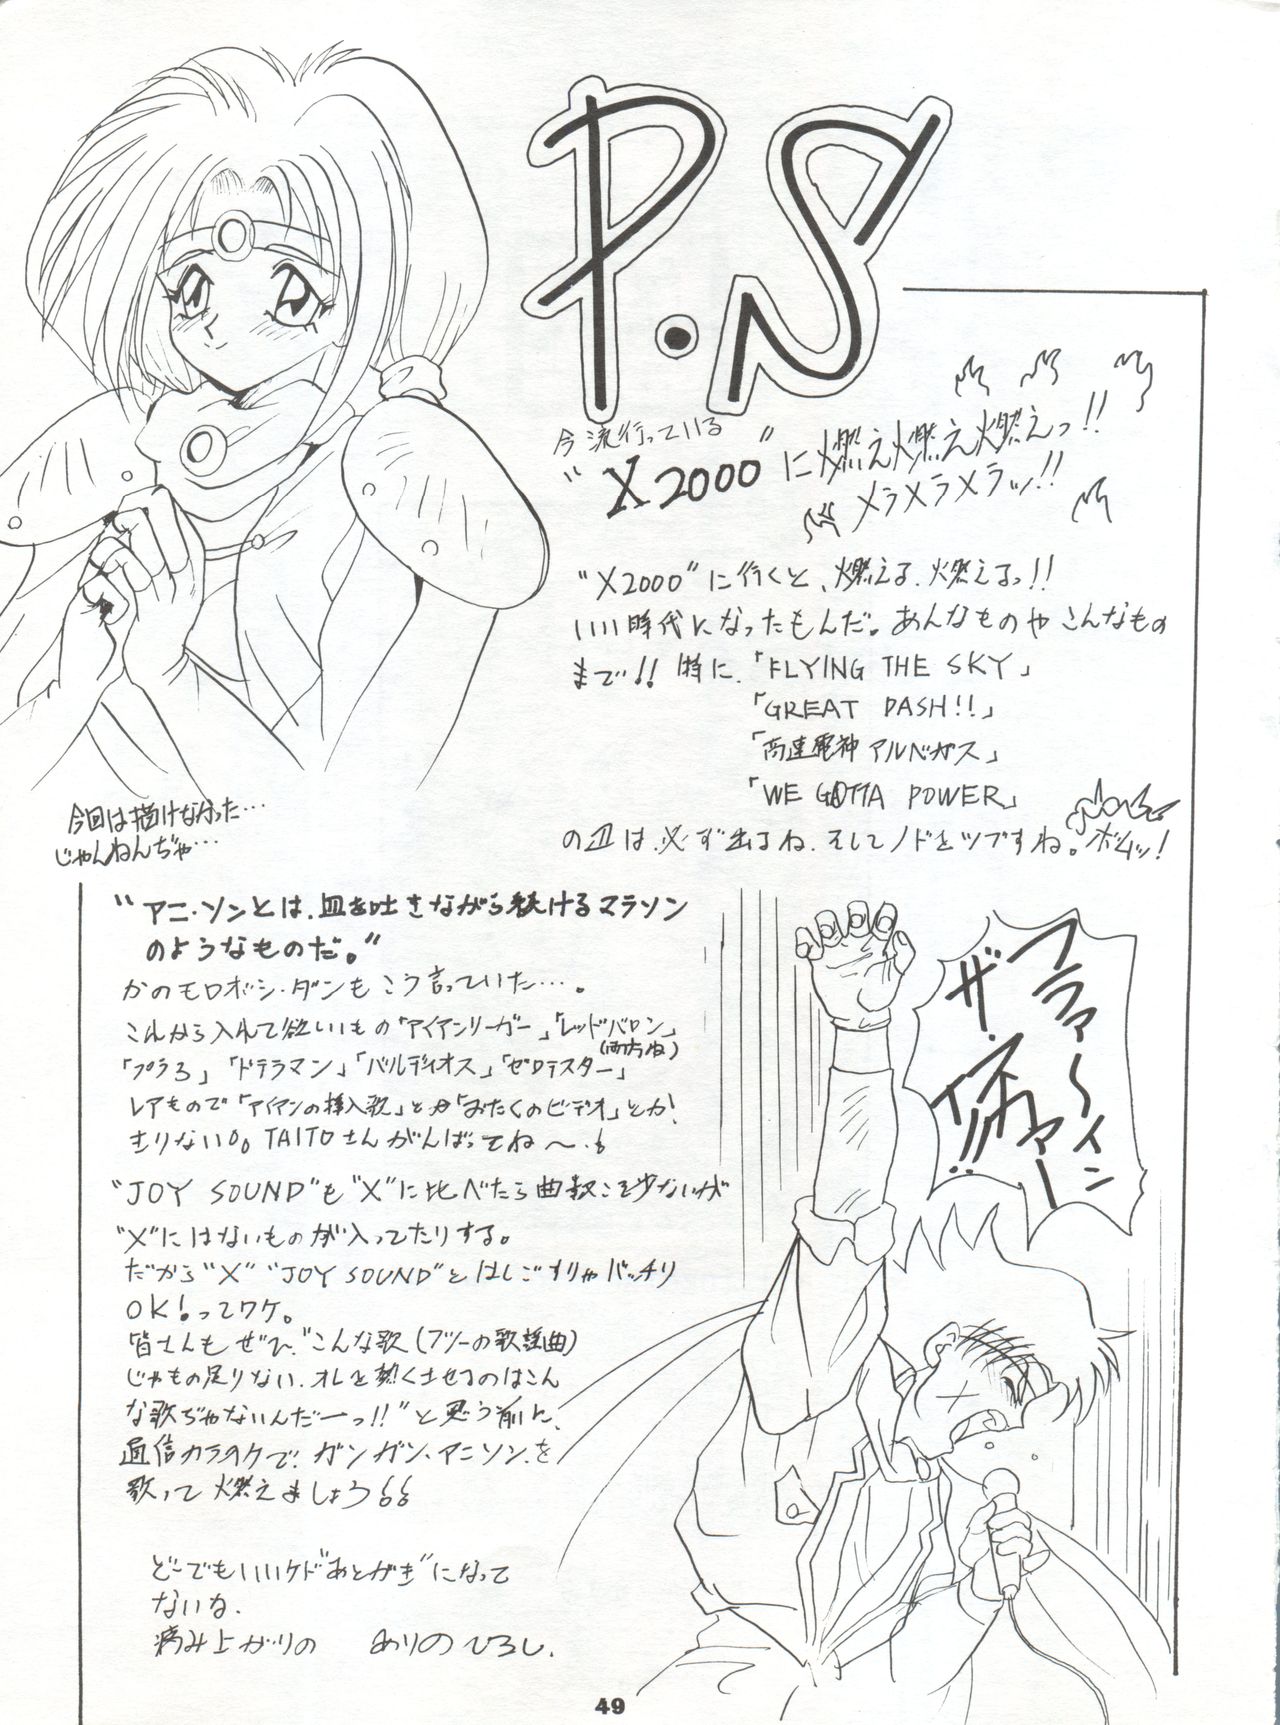 P.S
今流行っている
"X2000"に燃え燃え燃えっ!!
メラメラメラッ!!
"X2000"に行くと、燃える、燃えるっ!!
いい時代になったもんだ。あんなものやこんなもの
まで!! 特に、「FLYING THE SKY」
「GREAT DASH!!」
「高速電神アルベガス」
「WE GOTTA POWER」
の辺は、必ず出るね、そしてノドをツブすね。ボムッ!
今回は描けなかった…
じゃんねんぢゃ…
"アニ・ソンとは、血を吐きながら続けるマラソン
のようなものだ。"
かのモロボシ・ダンもこう言っていた…。
これから入れて欲しいもの「アイアンリーガー」「レッドバロン」
(両方ね)
「プラ3」「ドテラマン」「バルディオス」「ゼロテスター」
レアもので「アイアンの挿入歌」とか「おたくのビデオ」とか!
きりない。TAITOさんがんばってね〜
"JOY SOUND"も"X"に比べたら曲数こそ少ないが
"X"にはないものが入ってたりする。
だから"X""JOY SOUND"とはしごすりゃバッチリ
OK!ってワケ。
皆さんもぜひ、"こんな歌(フツーの歌謡曲)
じゃもの足りない、オレを熱くさせるのはこん
な歌ぢゃないんだーっ!!"と思う前に、
通信カラオケで、ガンガン、アニソンを
歌って燃えましょう
どーでもいいケド"あとがき"になって
ないな、
病み上がりの ありのひろし.
フラァ〜イイン
ザ・スカァー
イ!!
49